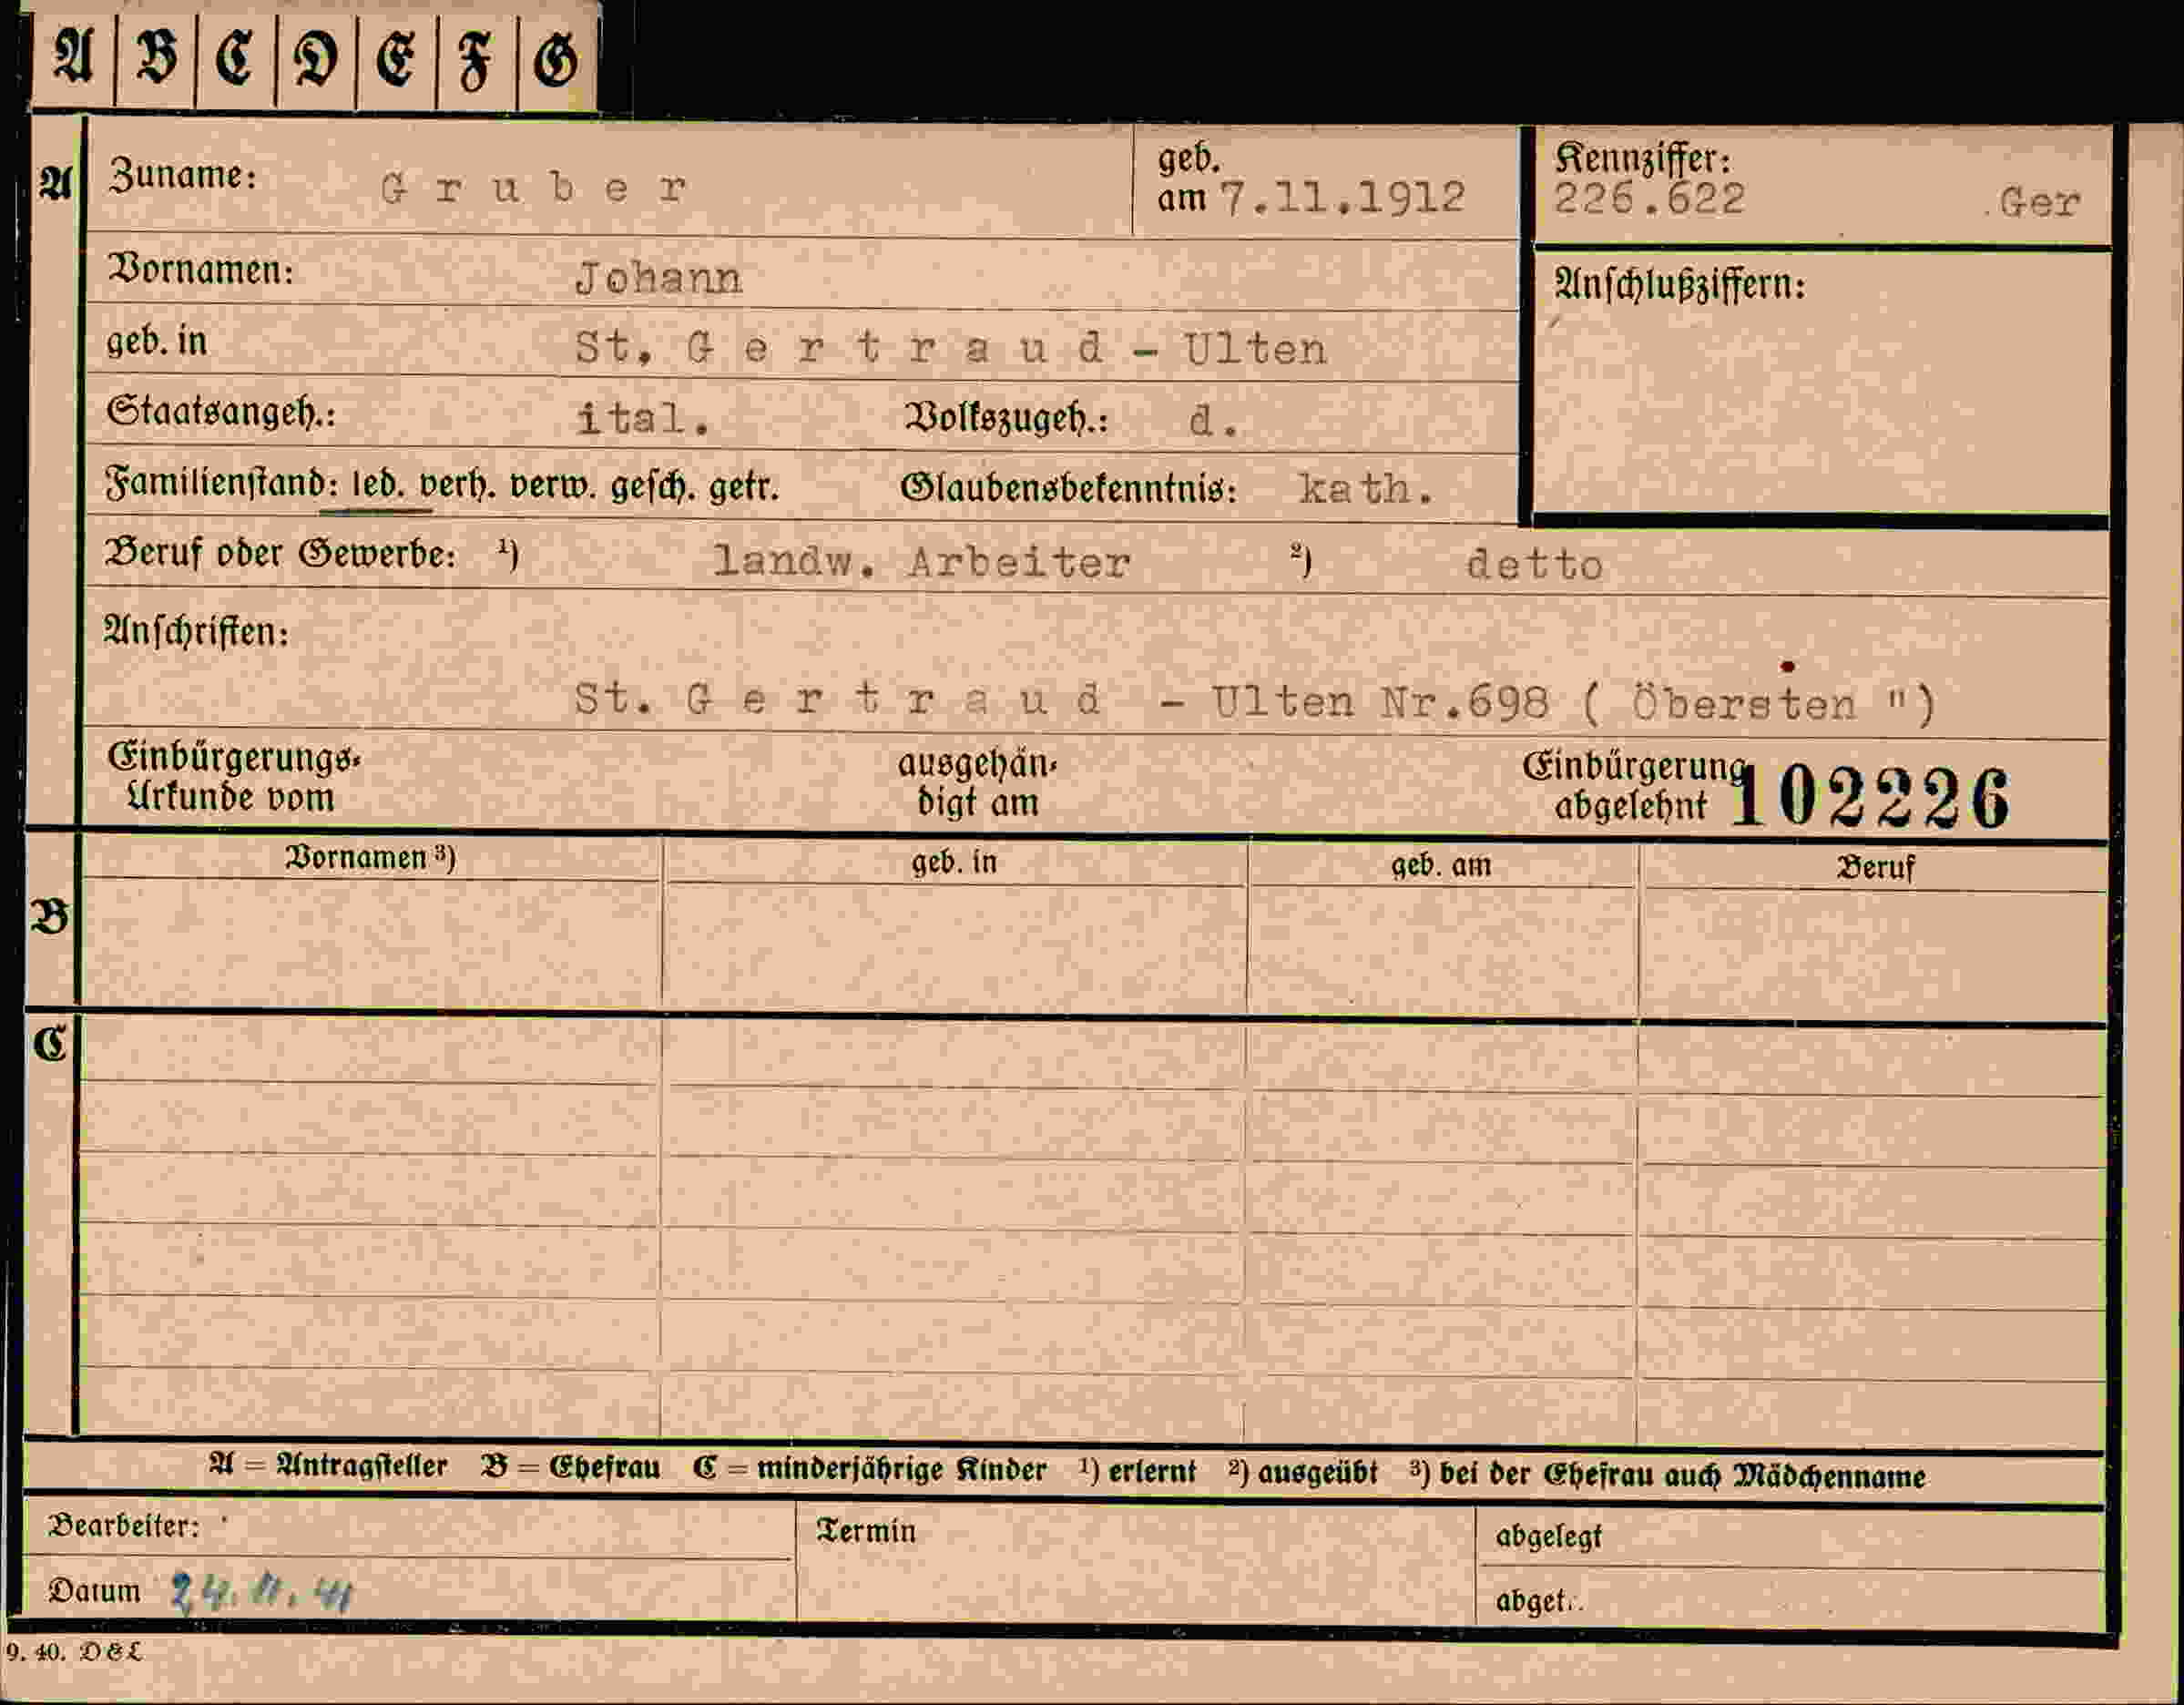 A B C D E F G
A Zuname: Gruber geb. am 7.11.1912 Kennziffer: 226.622 .Ger
Vornamen: Johann Anschlußziffern:
geb. in St. Gertraud - Ulten
Staatsangeh.: ital. Volkszugeh.: d.
Familienstand: led. verh. verw. gesch. getr. Glaubensbekenntnis: kath.
Beruf oder Gewerbe: ¹) landw. Arbeiter ²) detto
Anschriften:
St. Gertraud - Ulten Nr.698 ( Öbersten ")
Einbürgerungs- ausgehän- Einbürgerung
Urkunde vom digt am abgelehnt 102226
Vornamen ³) geb. in geb. am Beruf
B
C
A = Antragsteller B = Ehefrau C = minderjährige Kinder ¹) erlernt ²) ausgeübt ³) bei der Ehefrau auch Mädchenname
Bearbeiter: Termin abgelegt
Datum 24.11.41 abget.
9. 40. D&L